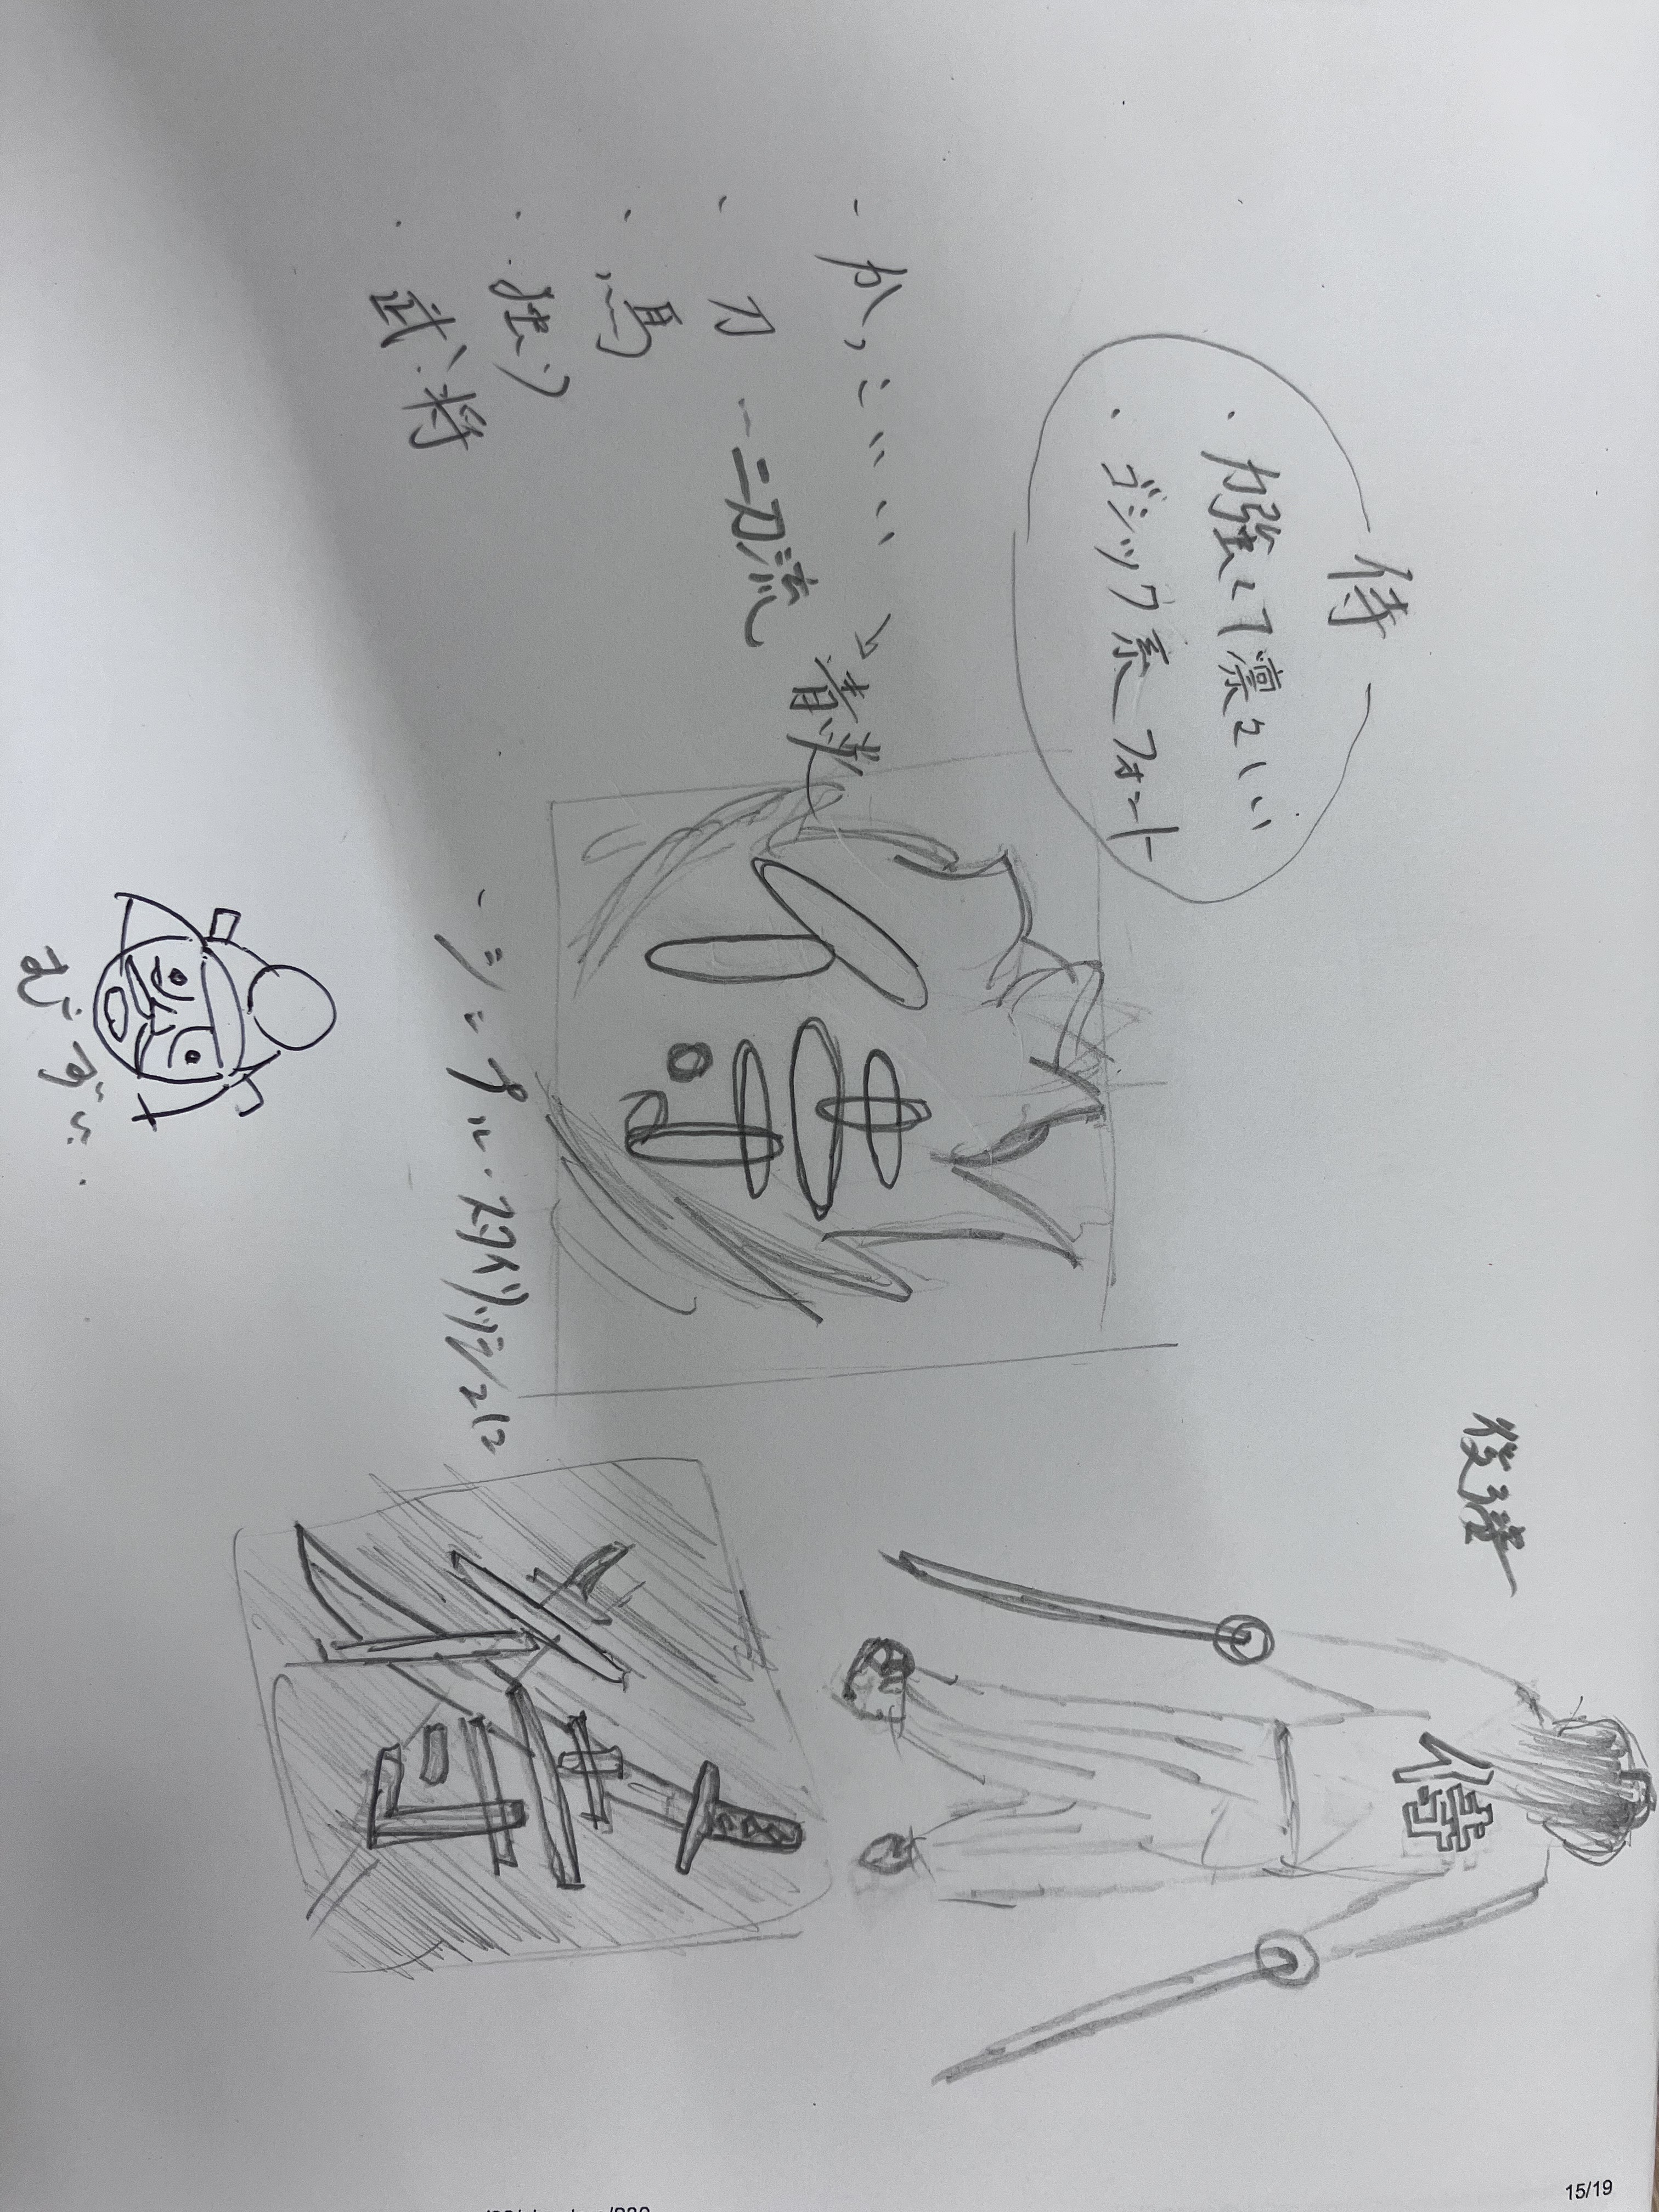 侍
・力強くて凛々しい
・ゴシック系フォント
・かっこいい → 青炎
・刀 - 二刀流
・馬
・独り
・武将
・シンプル・スタイリッシュに
侍
侍
侍
むずい..
15/19